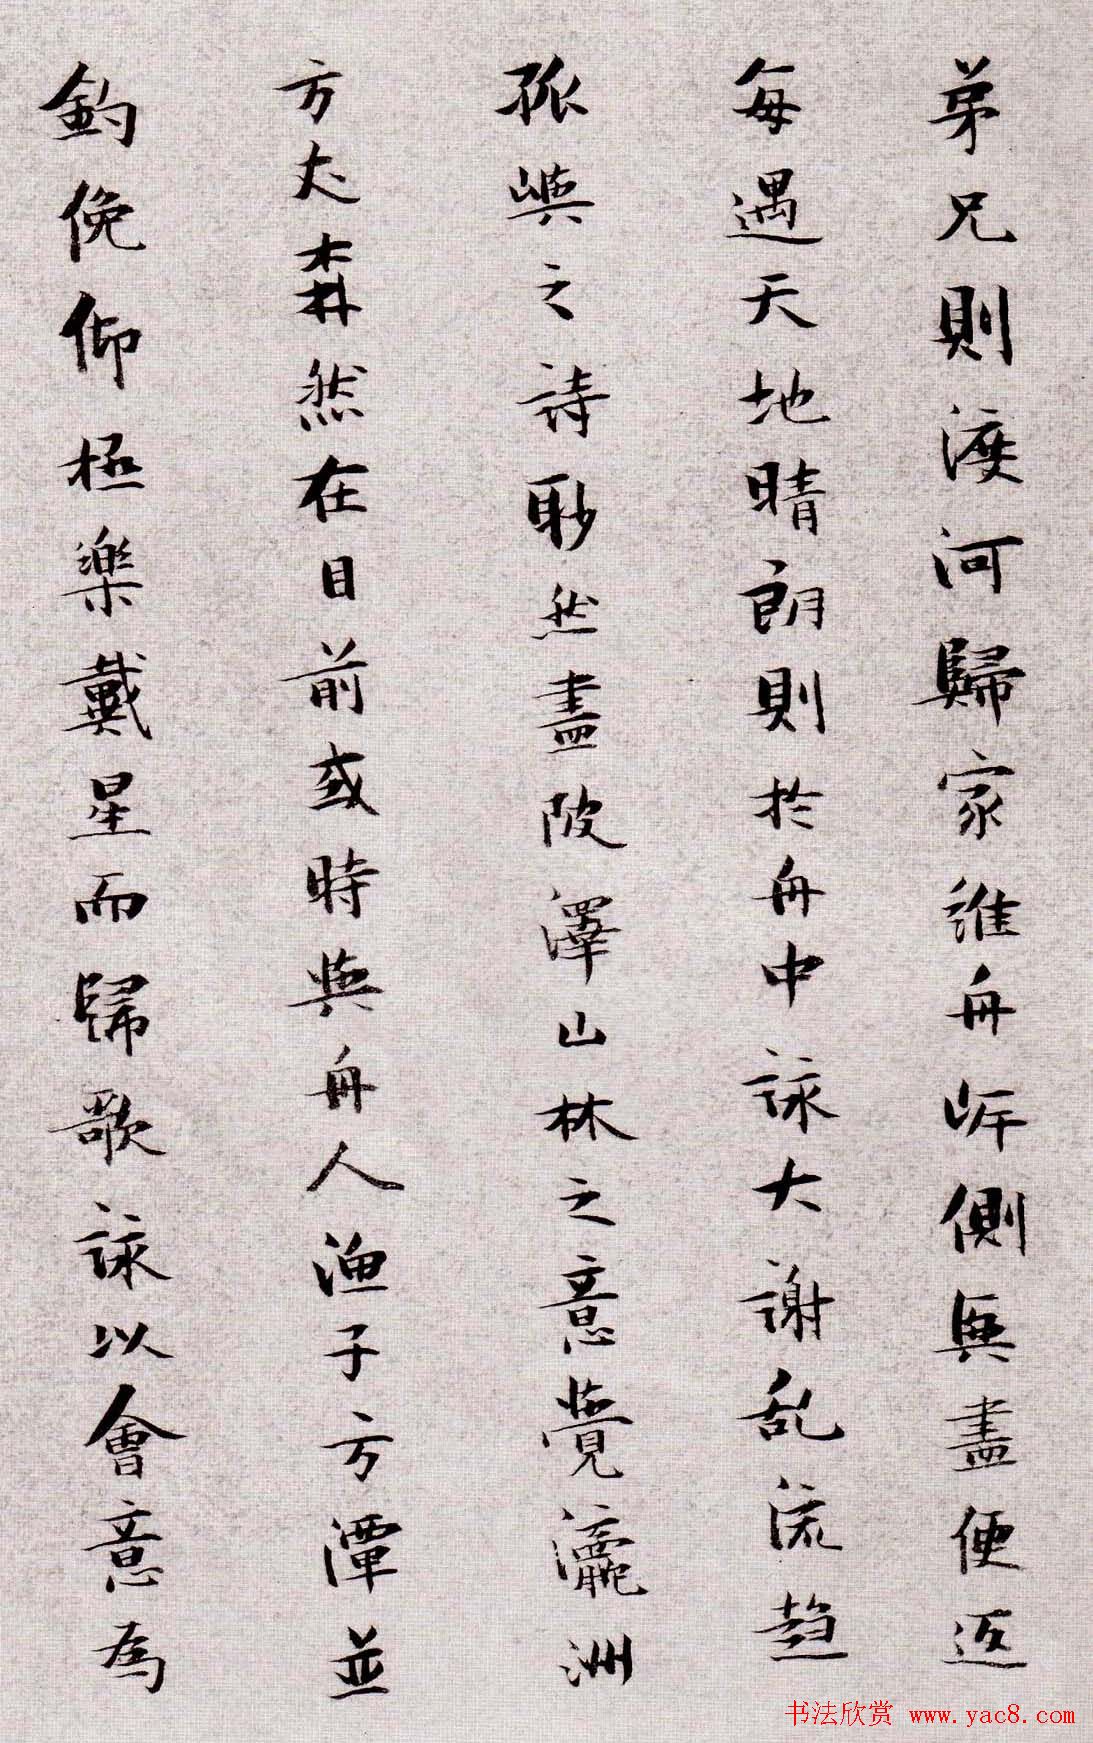 弟兄則渡河歸家維舟岍側興盡便返
每遇天地晴朗則於舟中詠大謝乱流趋
孤嶼之詩眇然盡陂澤山林之意覺瀛洲
方丈森然在目前或時與舟人漁子方潭並
釣俛仰極樂戴星而歸歌詠以會意為
书法欣赏 www.yac8.com